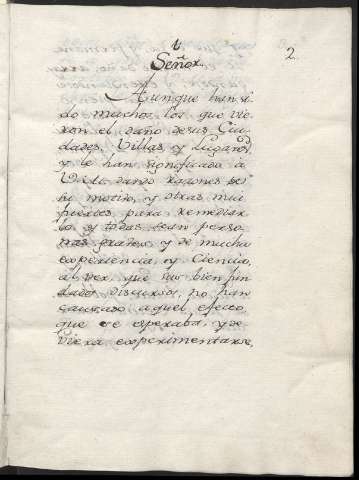 2
Señor.
Aunque han si-
do muchos los que vie-
ron el daño desus Ciu-
dades, Villas, y Lugares
y le han significado à
V. M. dando razones de
su motivo, y otras mui
fuertes para remediar-
lo, y todas sean perso-
nas graves, y de mucha
experiencia, y Ciencia,
al ver que sus bien fun
dados discursos, no han
causado aquel efecto
que se esperaba, y de-
viera experimentarse,